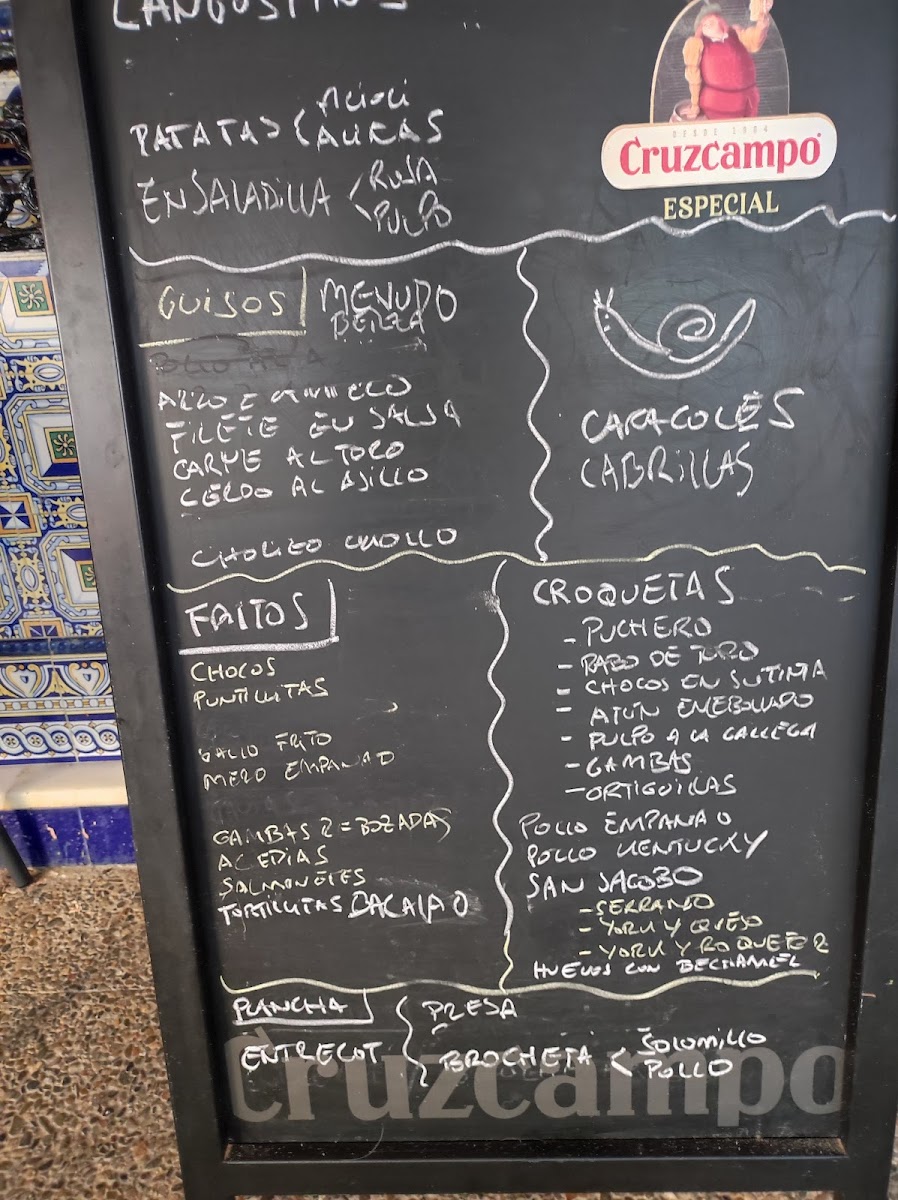 LANGOSTINOS
PATATAS ALIOLI
ALIÑAS
ENSALADILLA RUSA
PULPO
DESDE 1904
Cruzcampo
ESPECIAL
GUISOS
MENUDO
BERZA
FILETE EN SALSA
CARNE AL TORO
CERDO AL AJILLO
CHORIZO CRIOLLO
CARACOLES
CABRILLAS
FRITOS
CHOCOS
PUNTILLITAS
GALLO FRITO
MERO EMPANAD
GAMBAS REBOZADAS
ACEDIAS
SALMONETES
TORTILLITAS BACALAO
CROQUETAS
- PUCHERO
- RABO DE TORO
- CHOCOS EN SU TINTA
- ATÚN ENCEBOLLADO
- PULPO A LA GALLEGA
- GAMBAS
- ORTIGUILLAS
POLLO EMPANAO
POLLO KENTUCKY
SAN JACOBO
- SERRANO
- YORK Y QUESO
- YORK Y ROQUEFOR
HUEVOS CON BECHAMEL
PLANCHA
ENTRECOT
PRESA
BROCHETA SOLOMILLO
POLLO
Cruzcampo